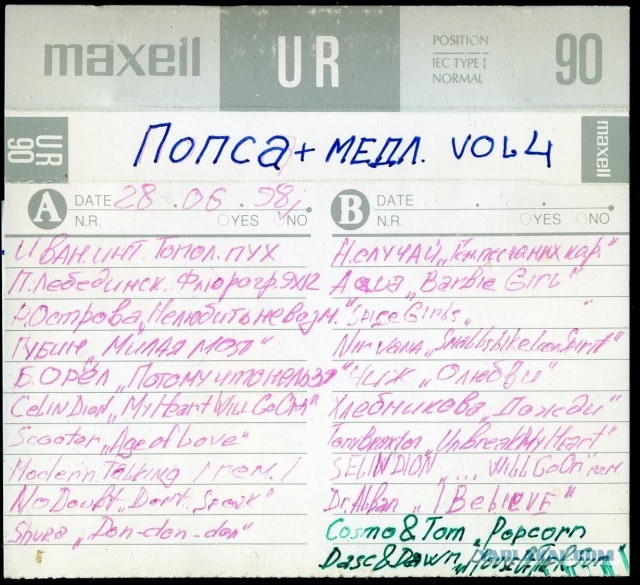 maxell UR POSITION
IEC TYPE I
NORMAL 90
UR 90 Попса + МЕДЛ. VOL 4 maxell
A DATE 28.06.98,
N.R. YES NO
ИВАН.ИНТ. Топол.пух
П.Лебединск. Флюрогр. 9X12
Острова „Нелюбить невозм."
Губин „Милая моя"
Б.ОРЁЛ „Потому что нельзя"
Celin Dion „My Heart Will Go On"
Scooter „Age of Love"
Modern Talking / rem. /
No Doubt „Dont Speak"
Shura „Don-don-don"
B DATE
N.R. YES NO
Н.СЛУЧАЙ
Aqua „Barbie Girl"
"Spice Girls „ "
Nirvana
Чиж „О любви"
Хлебникова „Дожди"
Tony Braxton „UnBreak My Heart"
SELIN DION „.... Will Go On" rem
Dr. Alban „I BELIEVE"
Cosmo & Tom „Popcorn
Dasc & Dawn